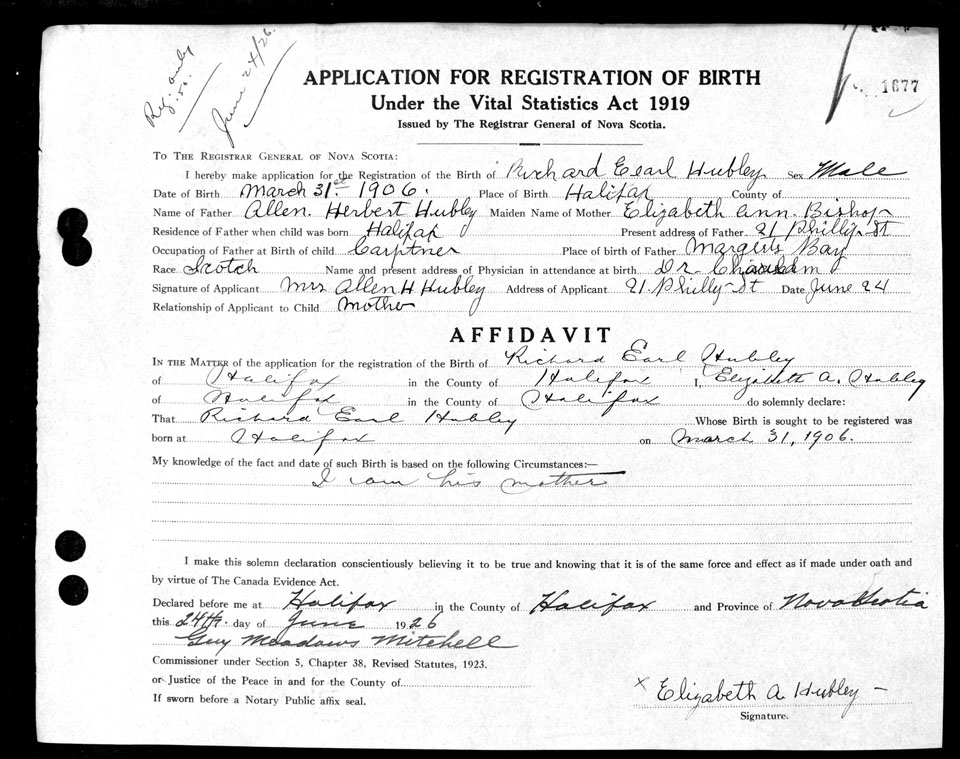 Reg. only
June 24/26.
1677
APPLICATION FOR REGISTRATION OF BIRTH
Under the Vital Statistics Act 1919
Issued by The Registrar General of Nova Scotia.
To The Registrar General of Nova Scotia:
I hereby make application for the Registration of the Birth of Richard Eearl Hubley Sex Male
Date of Birth March 31st 1906. Place of Birth Halifax County of
Name of Father Allen. Herbert Hubley Maiden Name of Mother Elizabeth Ann. Bishop
Residence of Father when child was born Halifax Present address of Father 21 Phillip St
Occupation of Father at Birth of child Carptner Place of birth of Father Margrets Bay
Race Scotch Name and present address of Physician in attendance at birth Dr.
Signature of Applicant Mrs Allen H Hubley Address of Applicant 21. Philly St Date June 24
Relationship of Applicant to Child Mother
AFFIDAVIT
In the Matter of the application for the registration of the Birth of Richard Earl Hubley
of Halifax in the County of Halifax I, Elizabeth A. Hubley
of Halifax in the County of Halifax do solemnly declare:
That Richard Earl Hubley Whose Birth is sought to be registered was
born at Halifax on March 31, 1906.
My knowledge of the fact and date of such Birth is based on the following Circumstances:—
I am his mother
I make this solemn declaration conscientiously believing it to be true and knowing that it is of the same force and effect as if made under oath and
by virtue of The Canada Evidence Act.
Declared before me at Halifax in the County of Halifax and Province of Nova Scotia
this 24th. day of June 1926
Guy Meadows Mitchell
Commissioner under Section 5, Chapter 38, Revised Statutes, 1923.
or Justice of the Peace in and for the County of
If sworn before a Notary Public affix seal.
x Elizabeth A Hubley —
Signature.